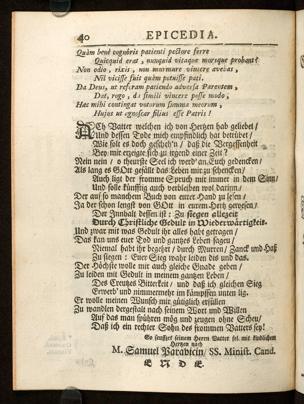 40 EPICEDIA.
Quàm benè vognbris patienti pectore ferre
Quicquid erat, nunquid vitaque morsque probant?
Non odio, rixis, non murmure vincere avebas,
Nil vicisse fuit quàm potuisse pati.
Da Deus, ut referam patiendo adversa Parentem,
Dat, rogo, di simili vincere posse modo,
Hac mihi contingat votorum summa meorum,
Hujus ut agnoscar filius esse Patris!
ACh Vatter welchen ich von Hertzen hab geliebet/
Und dessen Tode mich empfindlich hat betrübet/
Wie solt es doch geseh'n/ daß die Vergessenheit
Bey mir erzeige sich zu irgend einer Zeit?
Nein nein/ o theurste Seel ich werd' an Euch gedencken/
Als lang es GOtt gefällt das Leben mir zu schencken/
Auch ligt der fromme Spruch mir immer in dem Sinn/
Und solle künfftig auch verbleiben wol darinn/
Der auf so manchem Buch von eurer Hand zu sehen/
Ja der schon lengst von GOtt in eurem Hertz gewesen/
Der Innhalt dessen ist: Zu siegen allezeit
Durch Christliche Gedult in Wiederwärtigkeit.
Und zwar mit was Gedult ihr alles habt getragen/
Das kan uns euer Tod und gantzes Leben sagen/
Niemal habt ihr begehrt/ durch Murren/ Zanck und Haß
Zu siegen: Euer Sieg wahr leiden dis und das.
Der Höchste wolle mir auch gleiche Gnade geben/
Zu leiden mit Gedult in meinem gantzen Leben/
Des Creutzes Bitterkeit/ und daß ich gleichen Sieg
Erwerb' und nimmermehr im kämpffen unten lig.
Er wolle meinen Wunsch mir gütiglich erfüllen
Zu wandlen dergestalt nach seinem Wort und Willen
Auf das man spühren mög und zeugen ohne Scheu/
Daß ich ein rechter Sohn des frommen Vatters sey!
So seufftzet seinem Herrn Vatter sel. mit kindlichem
Hertzen nach
M. Samuel Parabicin/ SS. Minist. Cand.
E N D E.